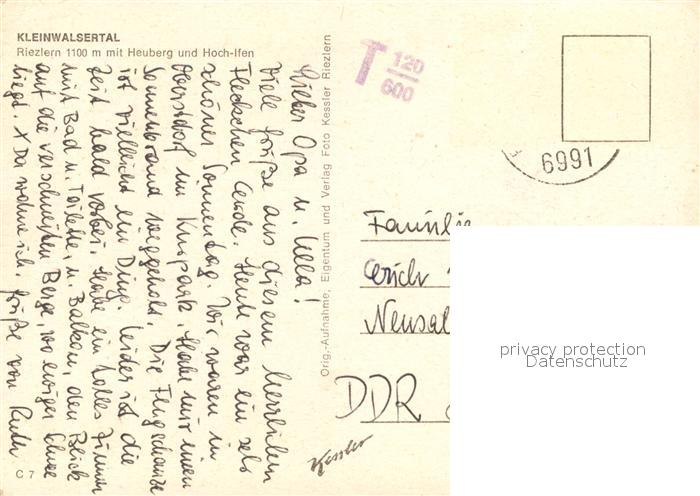 KLEINWALSERTAL
Riezlern 1100 m mit Heuberg und Hoch-Ifen
Lieber Opa u. Ulla!
Viele Grüße aus diesem herrlichen
Fleckchen Erde. Heute war ein sehr
schöner Sonnentag. Wir waren in
Oberstdorf im Kurpark. Habe mir einen
Sonnenbrand weggeholt. Die Flugschanze
ist vielleicht ein Ding. Leider ist die
Zeit bald vorbei. Habe ein tolles Zimmer
mit Bad u. Toilette, u. Balkon, den Blick
auf die verschneiten Berge, wo ewiger Schnee
liegt. X Da wohne ich. Grüße von
C 7
Orig.-Aufnahme, Eigentum und Verlag Foto Kessler Riezlern
T 120
600
6991
Familie
Erich
Neusal
DDR
Kessler
privacy protection
Datenschutz